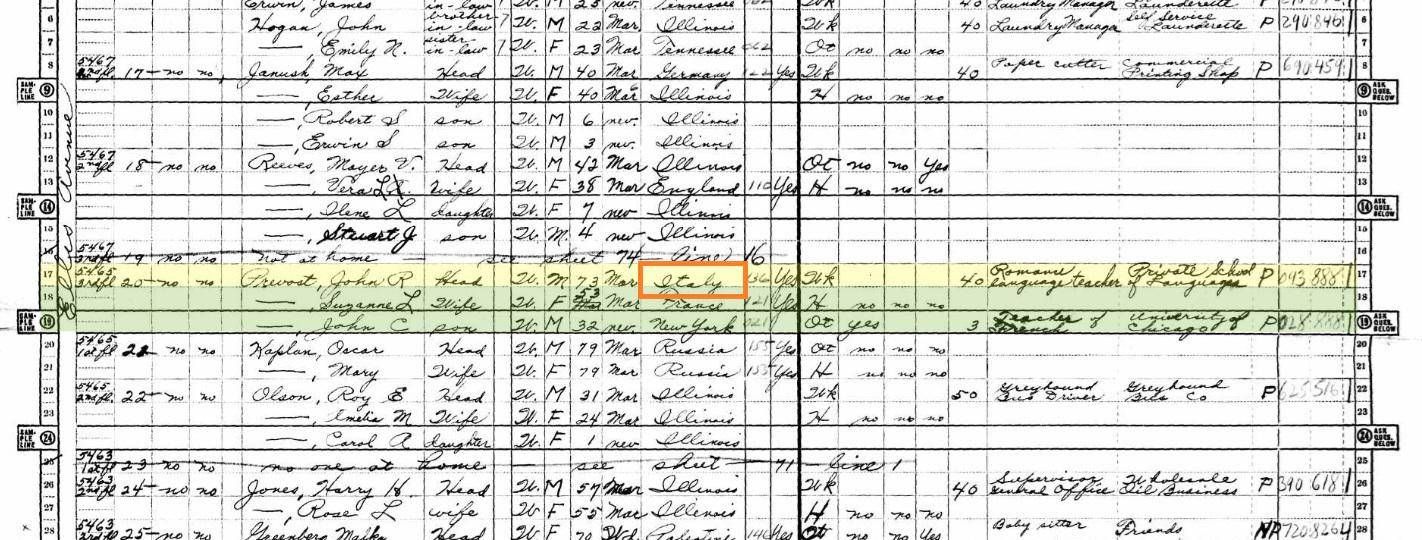 Erwin, James in-law W. M 25 nev. Tennessee 062 Wk 40 Laundry Manager Launderette
6 Hogan, John brother-in-law W. M 22 Mar Illinois Wk 40 Laundry Manager Self Service Launderette P 290 846 6
7 —, Emily N. sister-in-law W F 23 Mar Tennessee 062 Ot no no no 7
8 5467 17 no no Janush, Max Head W. M 40 Mar Germany 122 Yes Wk 40 Paper cutter Commercial Printing Shop P 690 459 8
SAMPLE LINE 9 —, Esther Wife W. F 40 Mar Illinois H no no no 9 ASK QUES. BELOW
10 —, Robert S son W. M 6 nev. Illinois 10
11 —, Erwin S son W. M 3 nev. Illinois 11
12 5467 2nd fl 18 no no Reeves, Mayer V. Head W. M 42 Mar Illinois Ot no no Yes 12
13 —, Vera L. Wife W. F 38 Mar England 110 Yes H no no no 13
SAMPLE LINE 14 —, Ilene L daughter W. F 7 nev Illinois 14 ASK QUES. BELOW
15 —, Stuart J son W. M. 4 nev Illinois 15
16 5467 3rd fl 19 no no not at home — see sheet 74 — line 16
17 5465 3rd fl 20 no no Prevost, John R Head W. M 73 Mar Italy 136 Yes Wk 40 Romance language teacher Private School of Languages P 043 888 17
18 —, Suzanne L Wife W. F 53 Mar France 121 Yes H no no no 18
SAMPLE LINE 19 —, John C son W. M 32 nev. New York 021 Ot yes 3 Teacher of French University of Chicago P 028 888 19 ASK QUES. BELOW
20 5465 1st fl 21 no no Kaplan, Oscar Head W. M 79 Mar Russia 155 Yes Ot no no no 20
21 —, Mary Wife W. F 79 Mar Russia 155 Yes H no no no 21
22 5465 2nd fl 22 no no Olson, Roy E Head W. M 31 Mar Illinois Wk 50 Greyhound Bus Driver Greyhound Bus Co P 625 516 22
23 —, Emelia M Wife W. F 24 Mar Illinois H no no no 23
SAMPLE LINE 24 —, Carol A daughter W. F 1 nev Illinois 24 ASK QUES. BELOW
25 5463 1st fl 23 no no no one at home — see sheet — 71 — line 1 25
26 5463 2nd fl 24 no no Jones, Harry H. Head W. M 57 Mar Illinois Wk 40 Supervisor General Office Wholesale Oil Business P 390 618 26
27 —, Rose L wife W. F 55 Mar Illinois H no no no 27
28 5463 3rd fl 25 no no Greenberg Malka Head W F 70 Wd Palestine 146 Yes Ot no no Yes Baby sitter Friends NP 720 826 4 28
Ellis Avenue